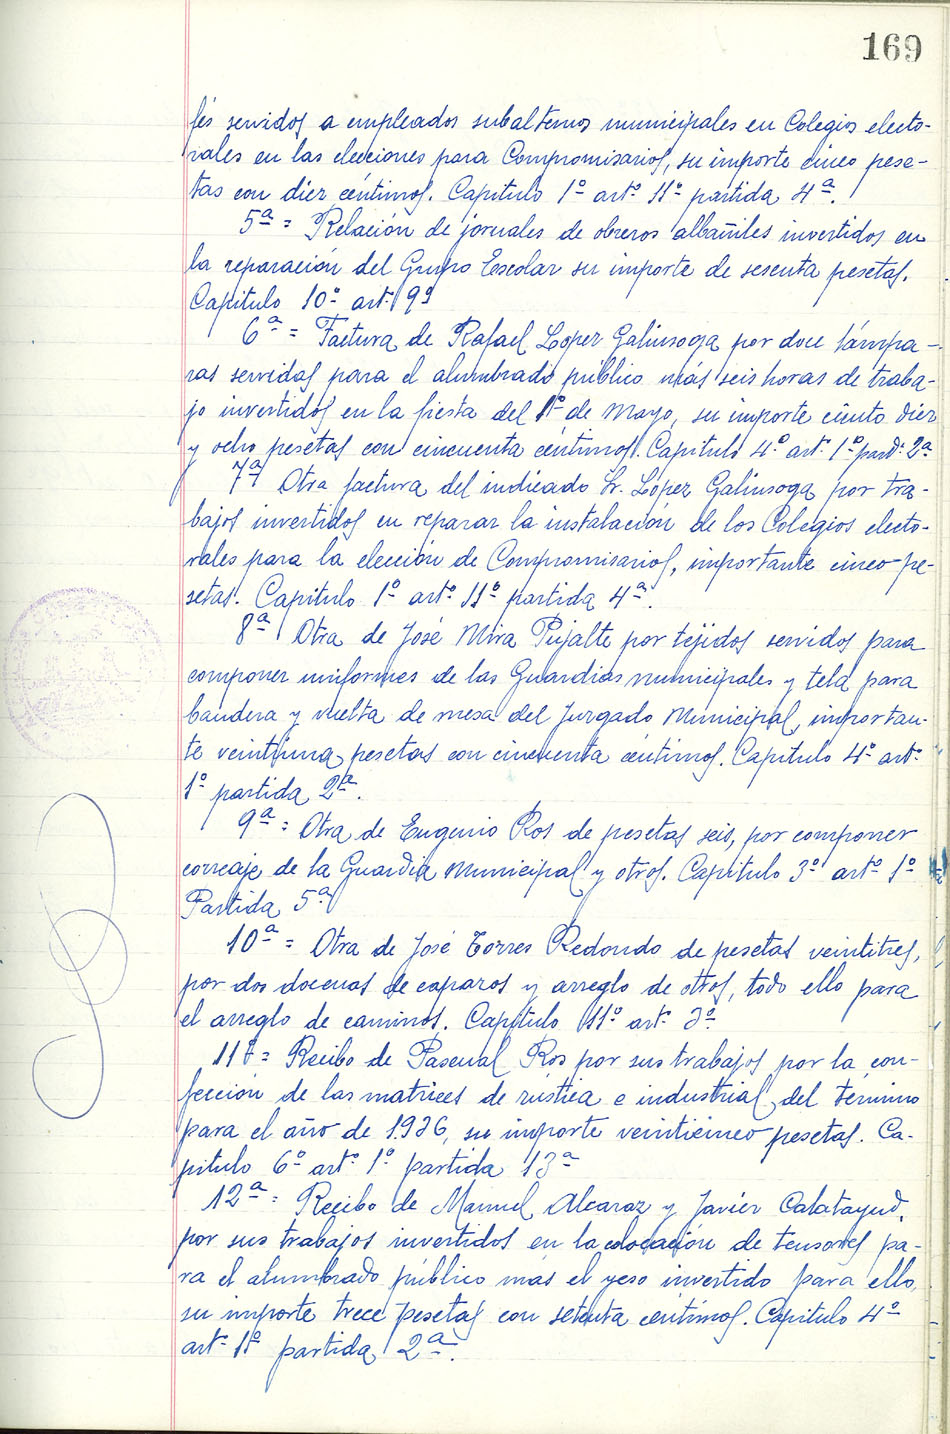 169
fés servidos a empleados subalternos municipales en Colegios electo-
rales en las elecciones para Compromisarios, su importe cinco pese-
tas con diez céntimos. Capitulo 1º artº 11º partida 4ª.
5ª = Relación de jornales de obreros albañiles invertidos en
la reparación del Grupo Escolar su importe de sesenta pesetas.
Capitulo 10º art. 9º
6ª = Factura de Rafael Lopez Galiusoga por doce lámpa-
ras servidas para el alumbrado público más seis horas de traba-
jo invertidos en la fiesta del 1º de Mayo, su importe ciento diez
y ocho pesetas con cincuenta céntimos. Capitulo 4º art. 1º part. 2ª
7ª Otra factura del indicado Sr. López Galiusoga por tra-
bajos invertidos en reparar la instalación de los Colegios electo-
rales para la elección de Compromisarios, importante cinco pe-
setas. Capitulo 1º artº 11º partida 4ª.
8ª Otra de José Mira Pujalte por tejidos servidos para
componer uniformes de las Guardias municipales y tela para
bandera y vuelta de mesa del Juzgado Municipal, importan-
te veintiuna pesetas con cincuenta céntimos. Capitulo 4º artº
1º partida 2ª.
9ª = Otra de Eugenio Ros de pesetas seis, por componer
correaje de la Guardia Municipal y otros. Capitulo 3º artº 1º
Partida 5ª
10ª = Otra de José Torres Redondo de pesetas veintitres,
por dos docenas de capazos y arreglo de otros, todo ello para
el arreglo de caminos. Capitulo 11º art. 3º
11ª = Recibo de Pascual Ros por sus trabajos por la con-
fección de las matrices de rústica e industrial del término
para el año de 1936, su importe veinticinco pesetas. Ca-
pitulo 6º artº 1º partida 13ª
12ª = Recibo de Manuel Alcaraz y Javier Calatayud,
por sus trabajos invertidos en la colocación de tensores pa-
ra el alumbrado público más el yeso invertido para ello,
su importe trece pesetas con setenta céntimos. Capitulo 4º
art. 1º partida 2ª.